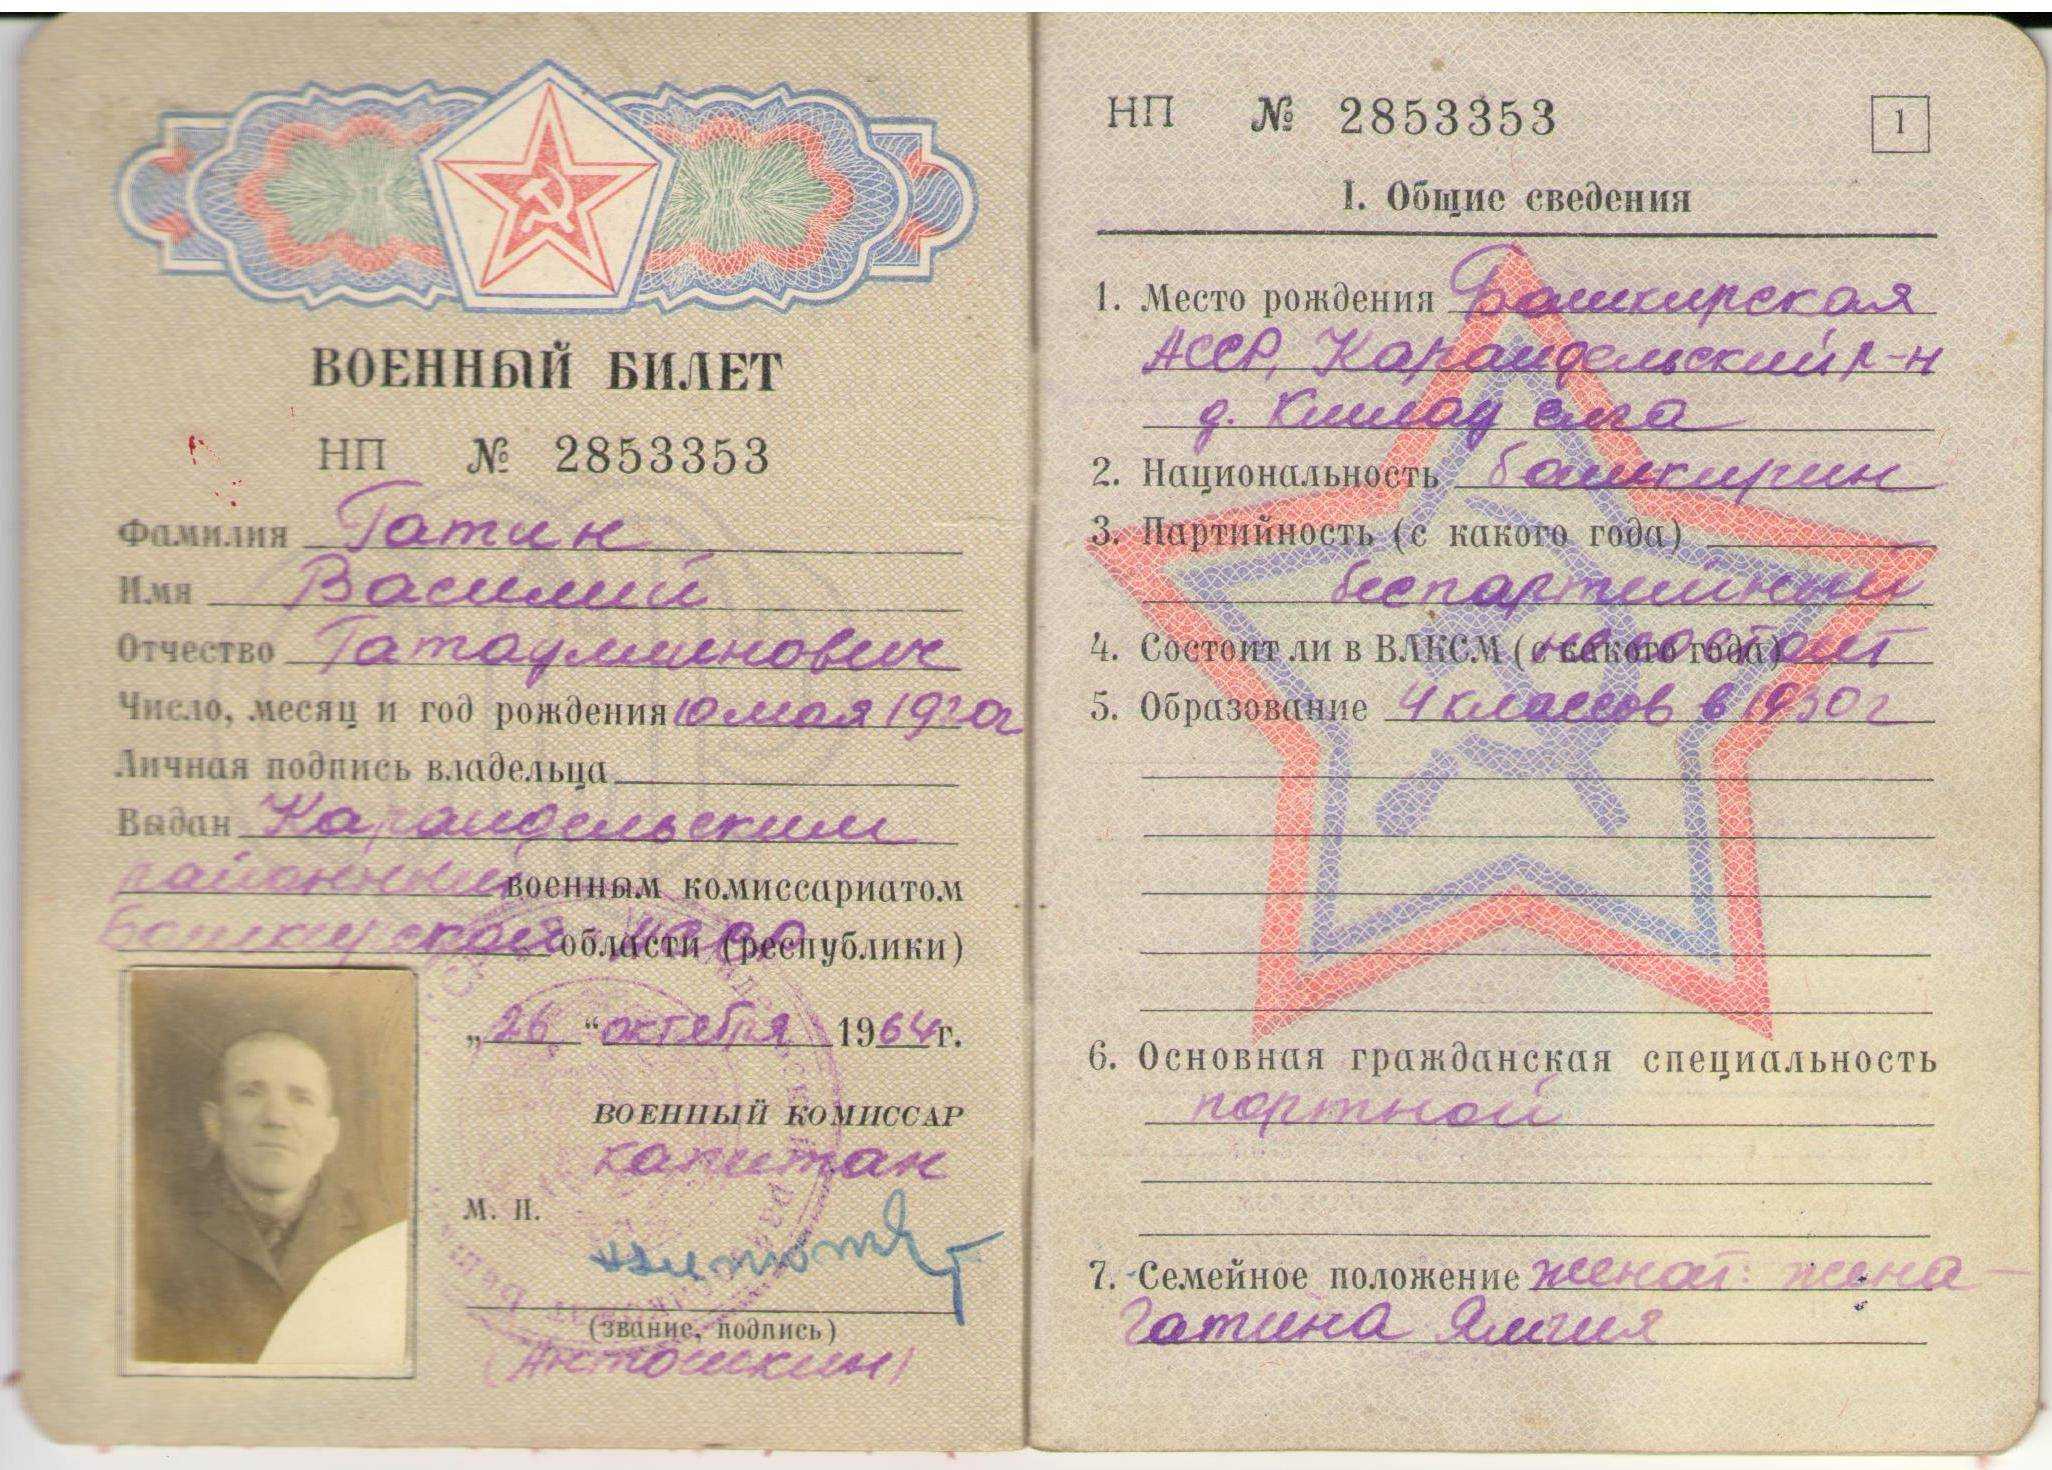 ВОЕННЫЙ БИЛЕТ
НП № 2853353
Фамилия Гатин
Имя Василий
Отчество Гатауллинович
Число, месяц и год рождения 10 мая 1920г
Личная подпись владельца
Выдан Караидельским
районным военным комиссариатом
Башкирской области (республики)
„26“ октября 1964г.
ВОЕННЫЙ КОМИССАР
капитан
М. П.
(звание, подпись)
(Антошкин)
НП № 2853353
1
I. Общие сведения
1. Место рождения Башкирская
АССР, Караидельский р-н
д. елга
2. Национальность башкирин
3. Партийность (с какого года)
беспартийный
4. Состоит ли в ВЛКСМ (с какого года) не состоит
5. Образование 4 классов в 1930г
6. Основная гражданская специальность
портной
7. Семейное положение женат: жена-
Гатина